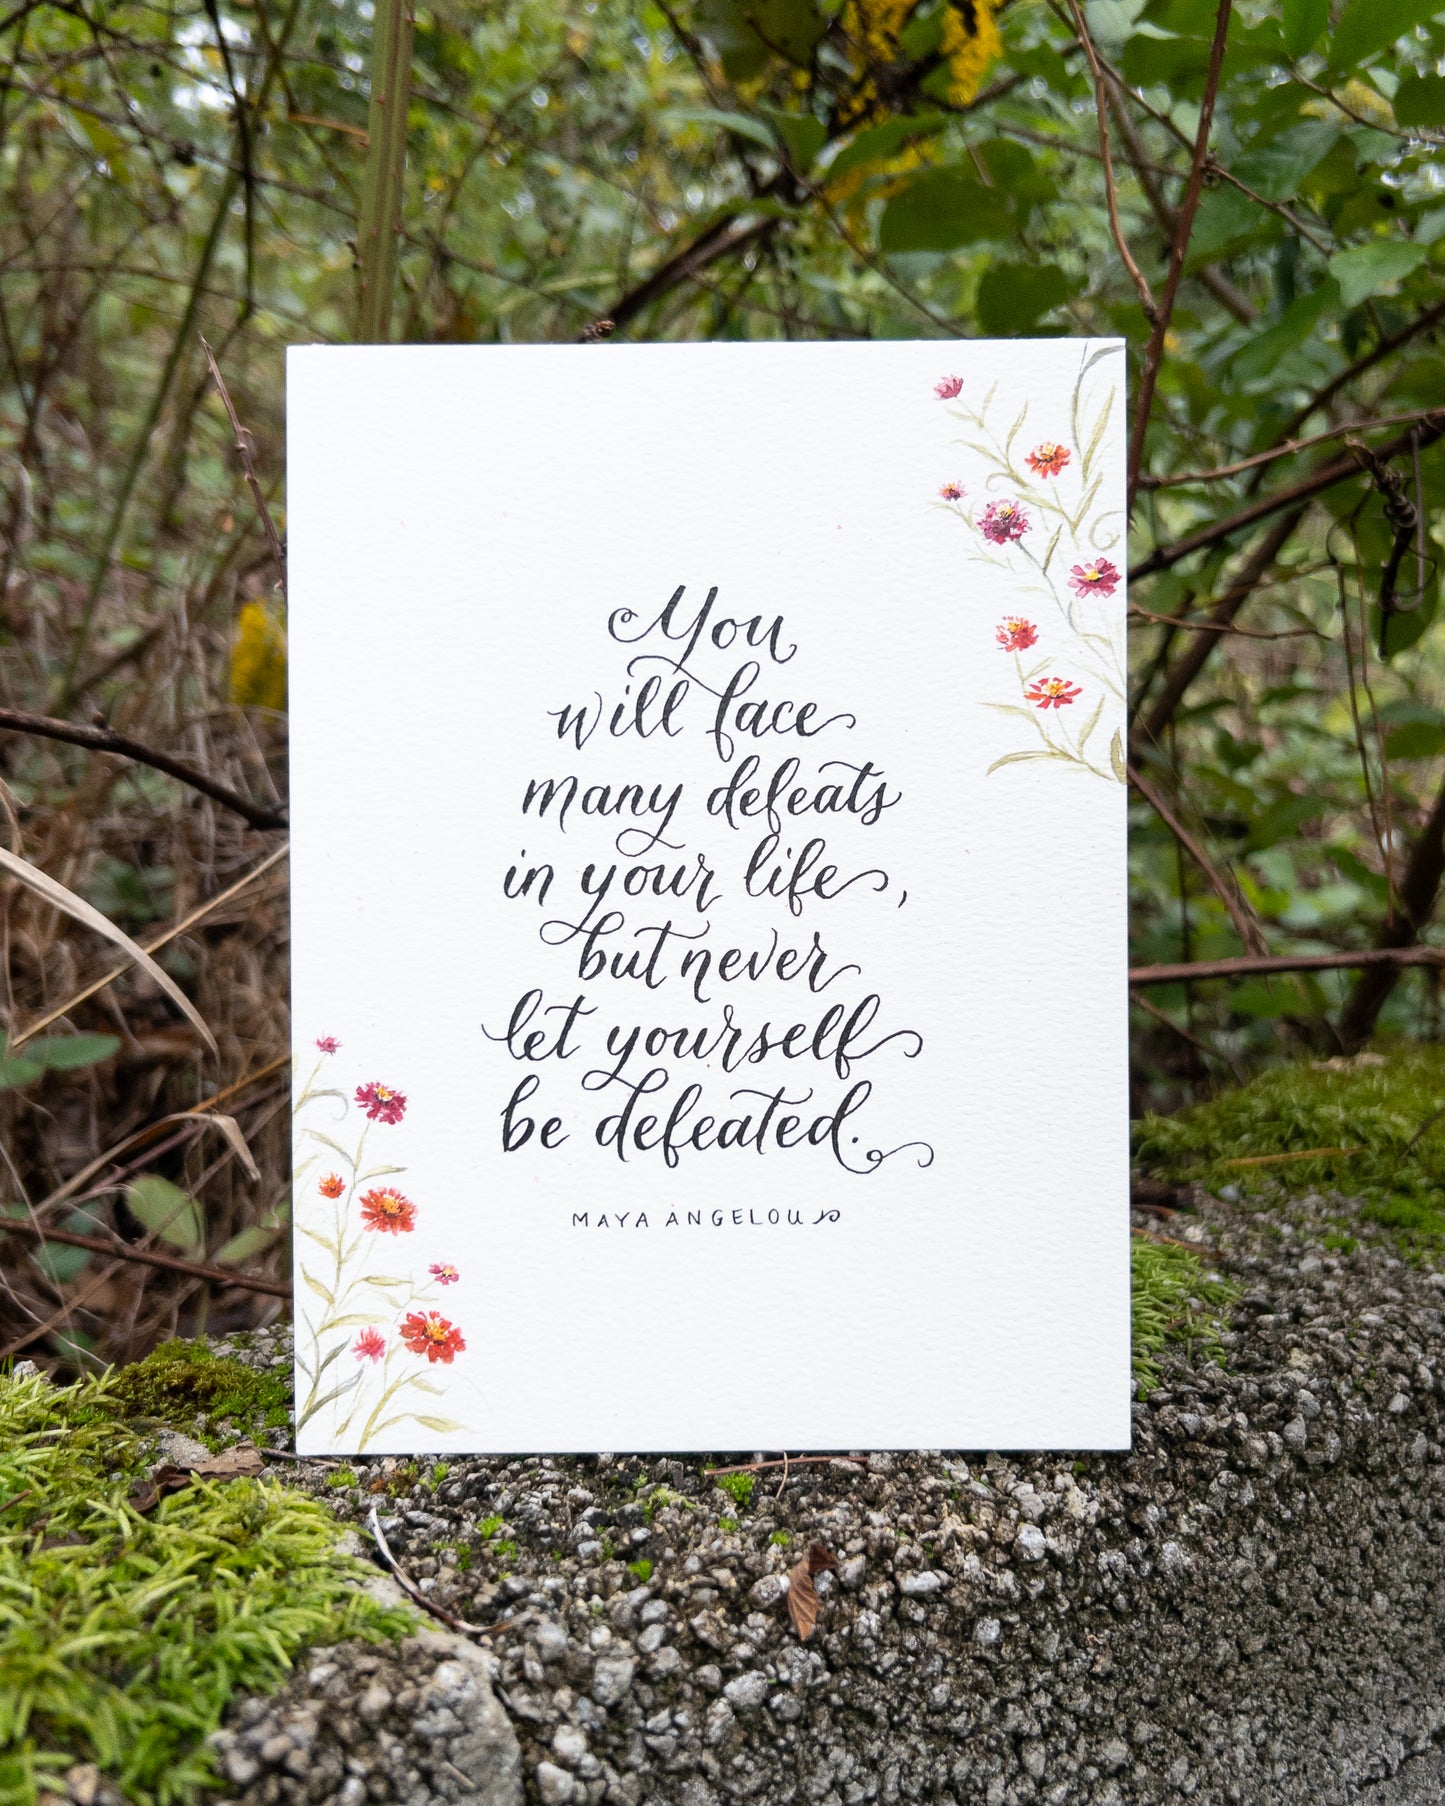 You
will face
many defeats
in your life,
but never
let yourself
be defeated.
MAYA ANGELOU